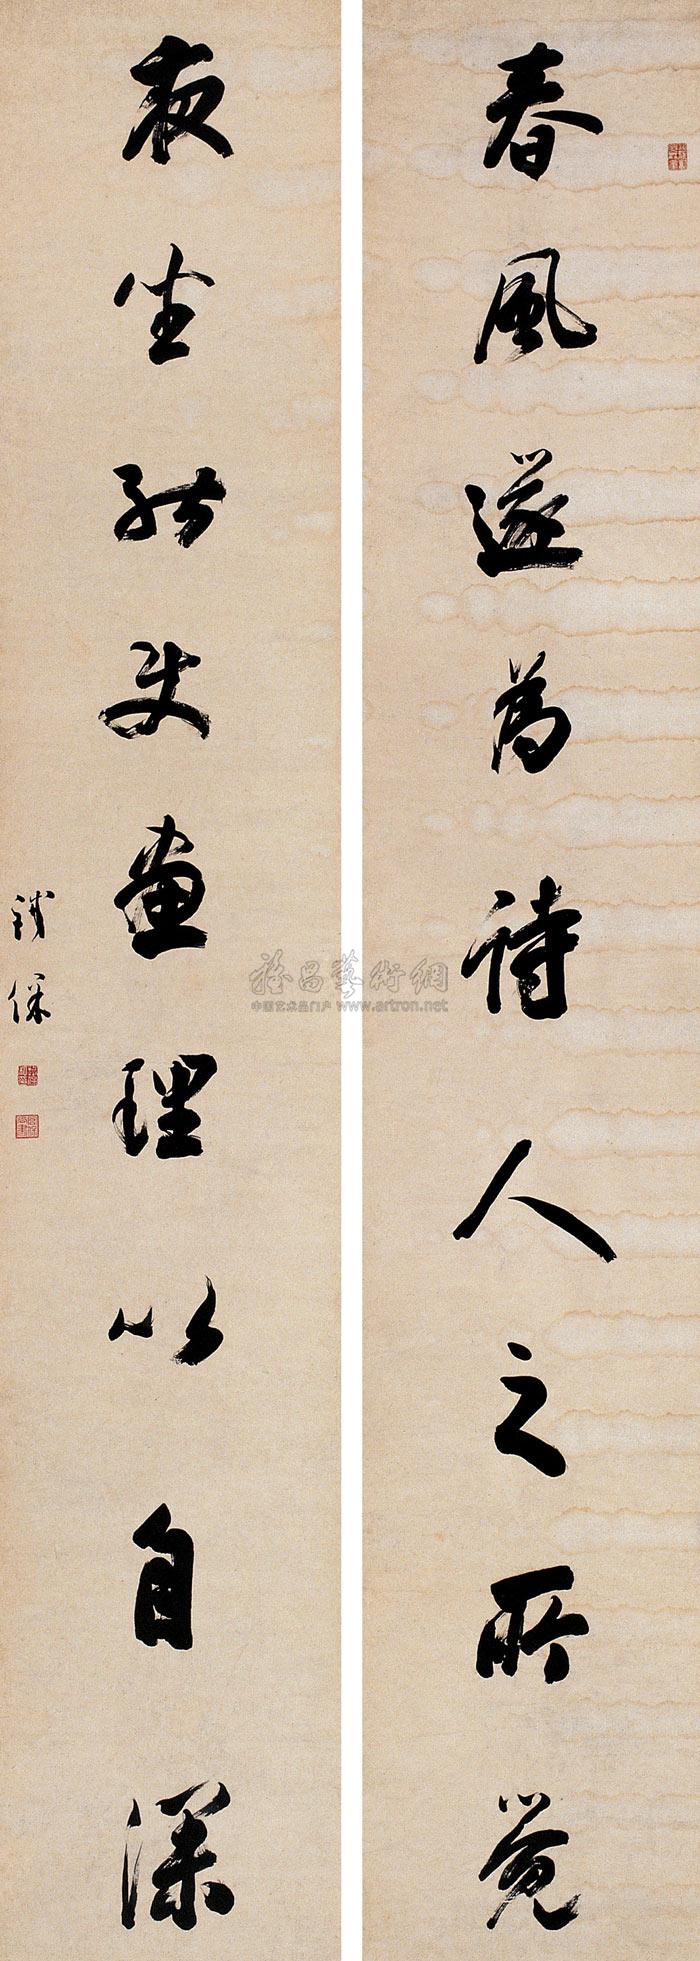 春風遂為詩人之所覺
夜坐能使畫理以自深
鐵保
雅昌藝術網
中国艺术品门户 www.artron.net